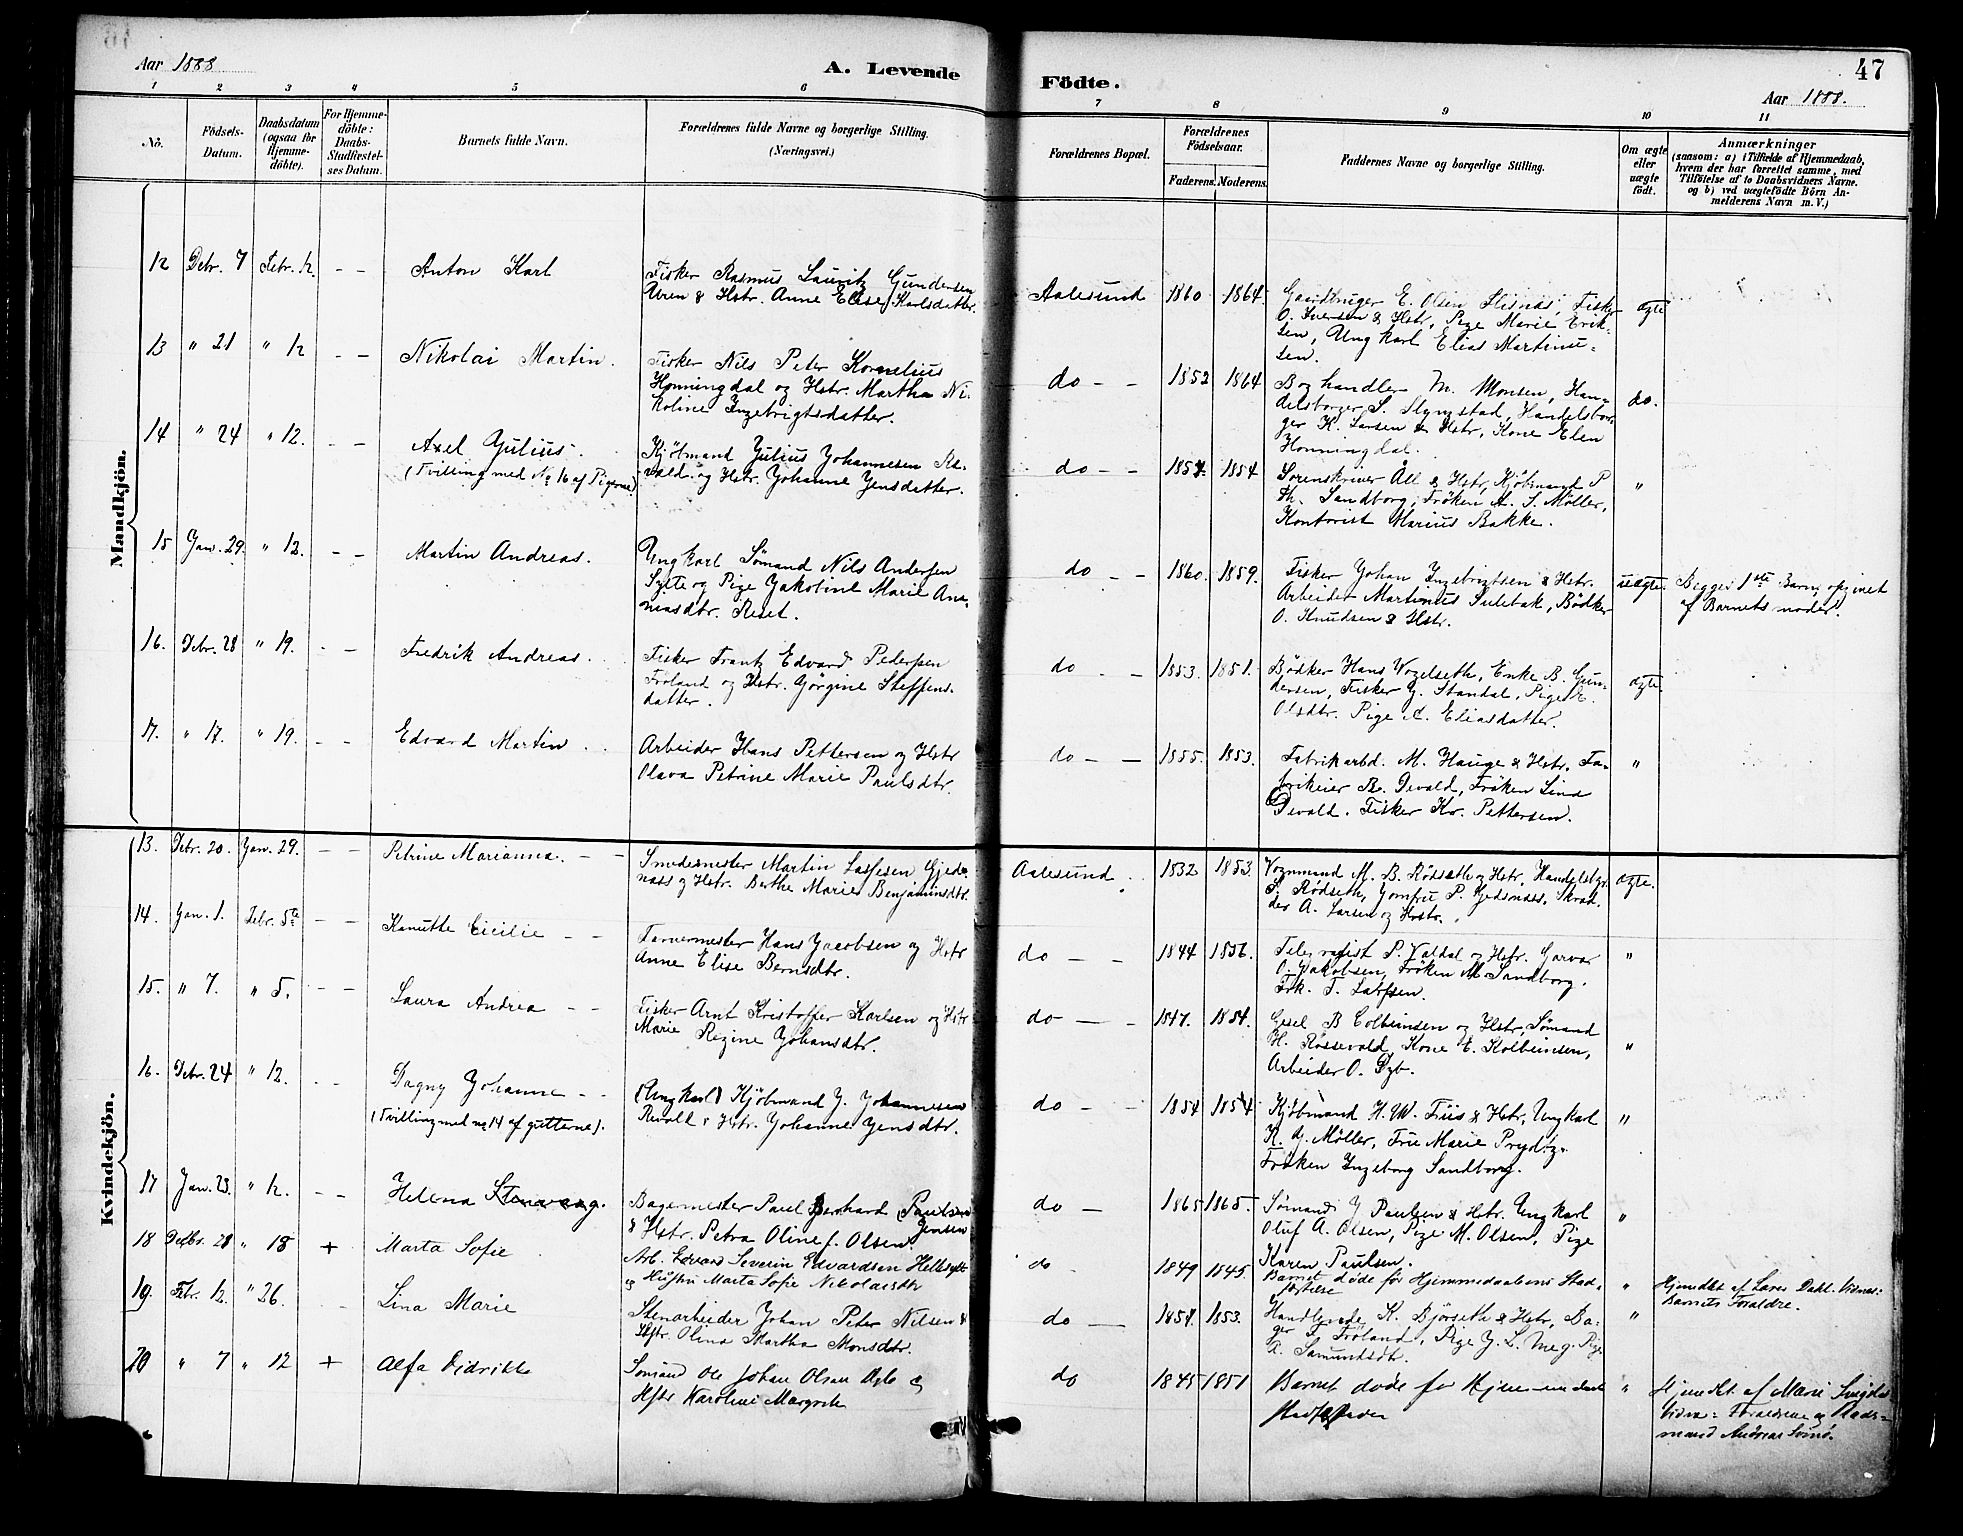 Aar 1888
A. Levende
Födte.
47
Aar 1888.
1 2 3 4 5 6 7 8 9 10 11
No.
Födsels-
Datum.
Daabsdatum
(ogsaa for
Hjemme-
döbte).
For Hjemme-
döbte:
Daabs-
Stadfæstel-
ses Datum.
Barnets fulde Navn.
Forældrenes fulde Navne og borgerlige Stilling.
(Næringsvei.)
Forældrenes Bopæl.
Forældrenes
Födselsaar.
Faderens. Moderens.
Faddernes Navne og borgerlige Stilling.
Om ægte
eller
uægte
födt.
Anmærkninger
(saasom: a) i Tilfælde af Hjemmedaab,
hvem der har forrettet samme, med
Tilföielse af to Daabsvidners Navne.
og b) ved uægtefödte Börn An-
melderens Navn m. V.)
Mandkjön.
12 Debr. 7 Febr. 12. - - Anton Karl
Fisker Rasmus Lauritz Gundersen
Uren & Hstr. Anne Elise Karlsdatter.
Aalesund 1860 1864.
Gaardbruger E. Olsen, Fisker
O. Iversen & Hstr, Pige Marie Erik-
sen, Ungkarl Elias Martinu-
sen.
ægte
13 " 21 " 12 - - Nikolai Martin.
Fisker Nils Peter Kornelius
Honningdal og Hstr. Martha Ni-
koline Ingebrigtsdatter.
do - - 1852 1864
Boghandler M. Monsen, Han-
delsborger S. Slyngstad, Handelsbor-
ger K. Larsen & Hstr, Kone Elen
Honningdal.
do.
14 " 24 " 12. - - Axel Julius.
(Tvilling med No 16 af Pigerne)
Kjöbmand Julius Johannesen Re-
vald. og Hstr. Johanne Jensdatter.
do - - 1854. 1854
Sorenskriver Åll & Hstr, Kjöbmand P
Th. Sandborg, Fröken A. S. Möller,
Kontorist Marius Bakke.
"
15 Jan. 29. " 12. - - Martin Andreas.
Ungkarl Sömand Nils Andersen
Sylte og Pige Jakobine Marie Ane-
masdtr. Reset.
do - - 1860. 1859.
Fisker Johan Ingebrigtsen & Hstr.
Arbeider Martinus Sulebak, Bödker
O. Knudsen & Hstr.
uægte. Begges 1ste Barn, opgivet
af Barnets moder.
16. Debr. 28 " 19. - - Fredrik Andreas.
Fisker Frantz Edvard Pedersen
Fröland og Hstr. Görgine Steffens-
datter.
do - - 1853. 1851.
Bödker Hans Vogelseth, Enke B. Gun-
dersen, Fisker J. Standal, Pige E.
Olsdtr. Pige A. Eliasdatter.
ægte.
17. " 17. " 19. - - Edvard Martin
Arbeider Hans Pettersen og Hstr
Olava Petrine Marie Paulsdtr.
do - - 1855. 1853.
Fabrikarbd. M. Hauge & Hstr. Fa-
brikeier B. Devold, Fröken Lina
Devold. Fisker Kr. Pettersen.
"
Kvindekjön.
13. Debr. 20. Jan. 29. - - Petrine Marianna. - -
Smedemester Martin Lassesen Gjeds-
næss og Hstr. Berthe Marie Benjaminsdtr.
Aalesund. 1832 1853.
Vognmand M. B. Rödseth og Hstr, Handelsbgr.
S. Rödseth, Jomfru P. Gjedsnæss, Skræd-
der A. Larsen og Hstr.
ægte.
14. Jan. 1. Febr. 5te - - Kanutte Cicilie - -
Farvermester Hans Jacobsen og Hstr
Anne Elise Berntsdtr.
do - - 1844 1856.
Telegrafist P. Valdal og Hstr. Garver
O. Jakobsen, Fröken M. Sandborg.
Frk. T. Larsen.
"
15. " 7. " 5. - - Laura Andrea - -
Fisker Arnt Kristoffer Karlsen og Hstr
Marie Regine Johansdtr.
do - - 1847. 1854.
Gesel B Colbeinsen og Hstr, Sömand
H. Rössevold, Kone E. Kolbeinsen,
Arbeider O. Dyb.
"
16. Debr. 24 " 12. - - Dagny Johanne - -
(Tvilling med no 14 af gutterne).
(Ungkarl) Kjöbmand J. Johannesen
Revold & Hstr. Johanne Jensdtr.
do - - 1854 1854
Kjöbmand H. W. Friis & Hstr, Ungkarl
K. J. Möller, Fru Marie Prydtz.
Fröken Ingeborg Sandborg.
"
17 Jan. 23. " 12. - - Helena Stenvaag.
Bagermester Paul Bernhard (Paulsen
Jensen
& Hstr. Petra Oline f. Olsen.
do - 1865 1865.
Sömand J Paulsen & Hstr. Ungkarl
Oluf A. Olsen, Pige M. Olsen, Pige
Karen Paulsen.
"
18 Decbr. 28 " 18 + Marta Sofie
Arb. Edvard Severin Edvardsen Hellesylt
og Hustru Marta Sofie Nikolaisdtr
do 1849 1845.
Barnet döde för Hjemmedaabens Stad-
fæstelse
" Hjemdöbt af Lars Dahl. Vidner:
Barnets Forældre.
19. Febr. 12. " 26. - Lina Marie
Stenarbeider Johan Peter Nilsen &
Hstr. Olina Martha Monsdtr.
do - 1854. 1853.
Handlende K. Björseth & Hstr, Ba-
ger S. Fröland, Pige J. L. Meg. Pige
A. Samundsdtr.
"
20 " 7 " 12 + Alfa Didrikke
Sömand Ole Johan Olsen Dyb og
Hstr Karoline Margrete
do 1845 1851
Barnet döde for Hjemmedaabs
" Hjemdbt. af Marie
Vidner: Forældrene og Plads-
mand Andreas